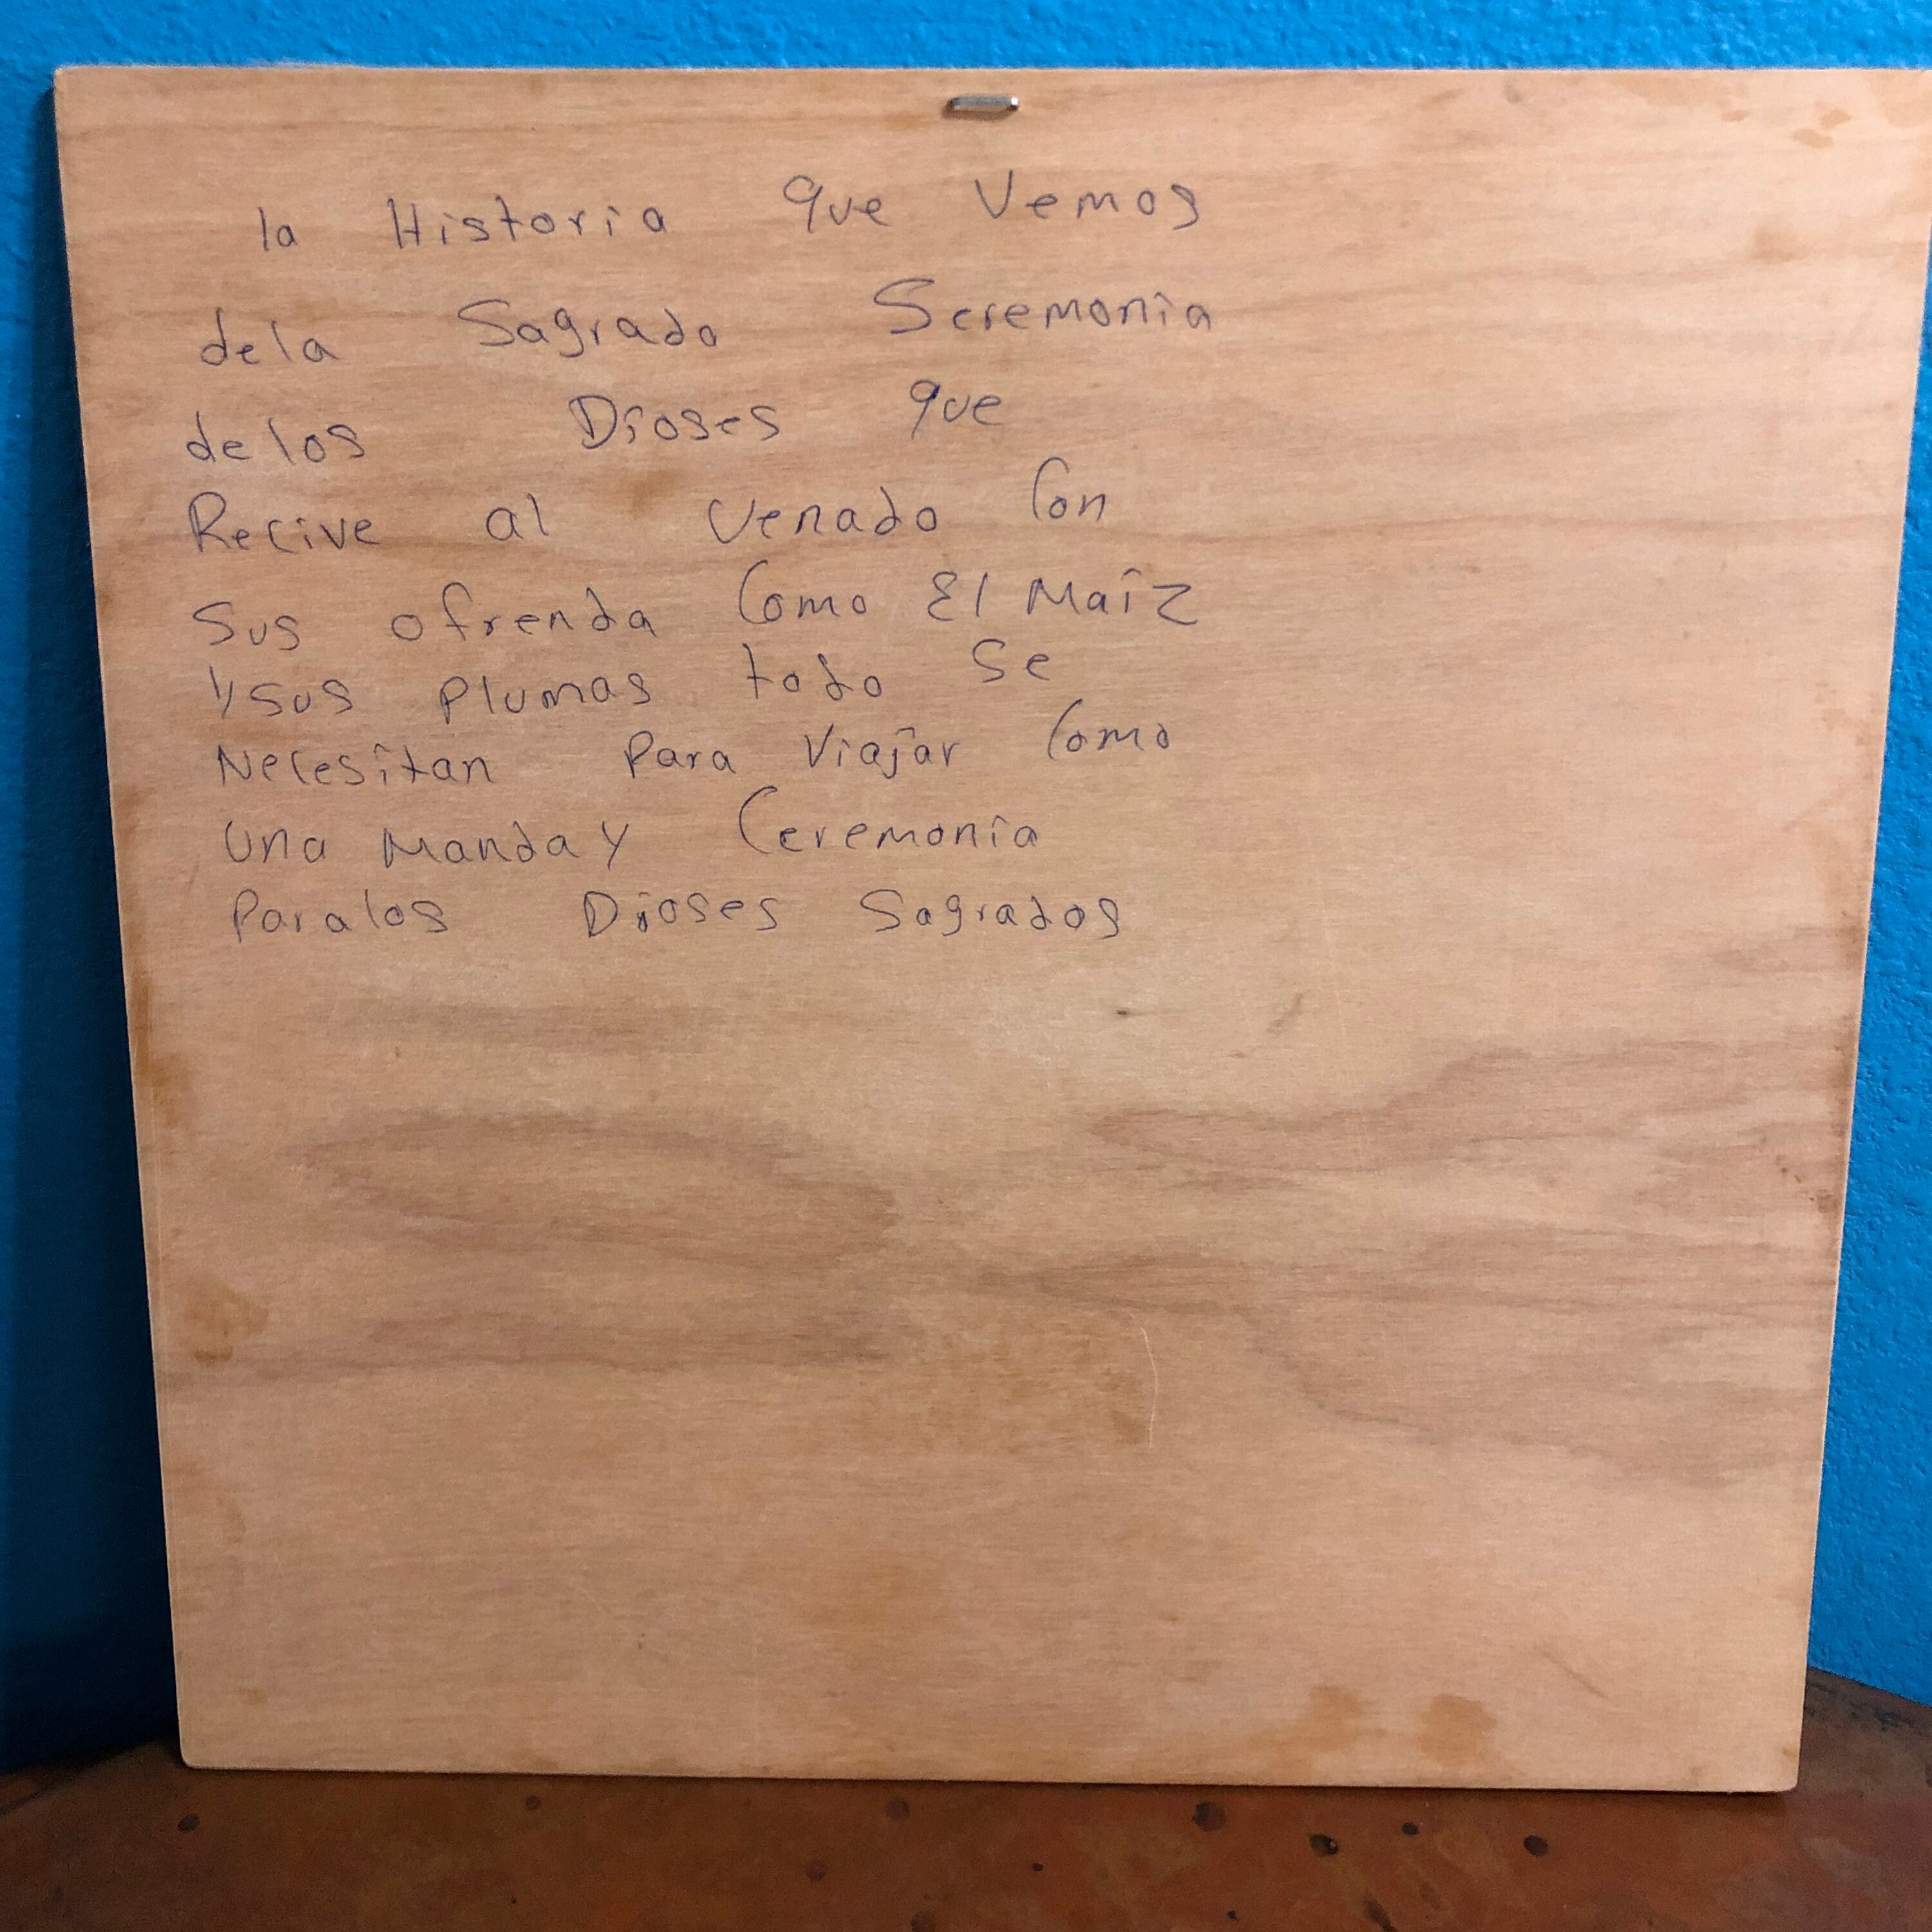 la Historia que Vemos
dela Sagrado Seremonia
delos Dioses que
Recive al venado Con
Sus ofrenda Como El Maiz
y sus Plumas todo se
Necesitan Para Viajar Como
una Manda y Ceremonia
Paralos Dioses Sagrados